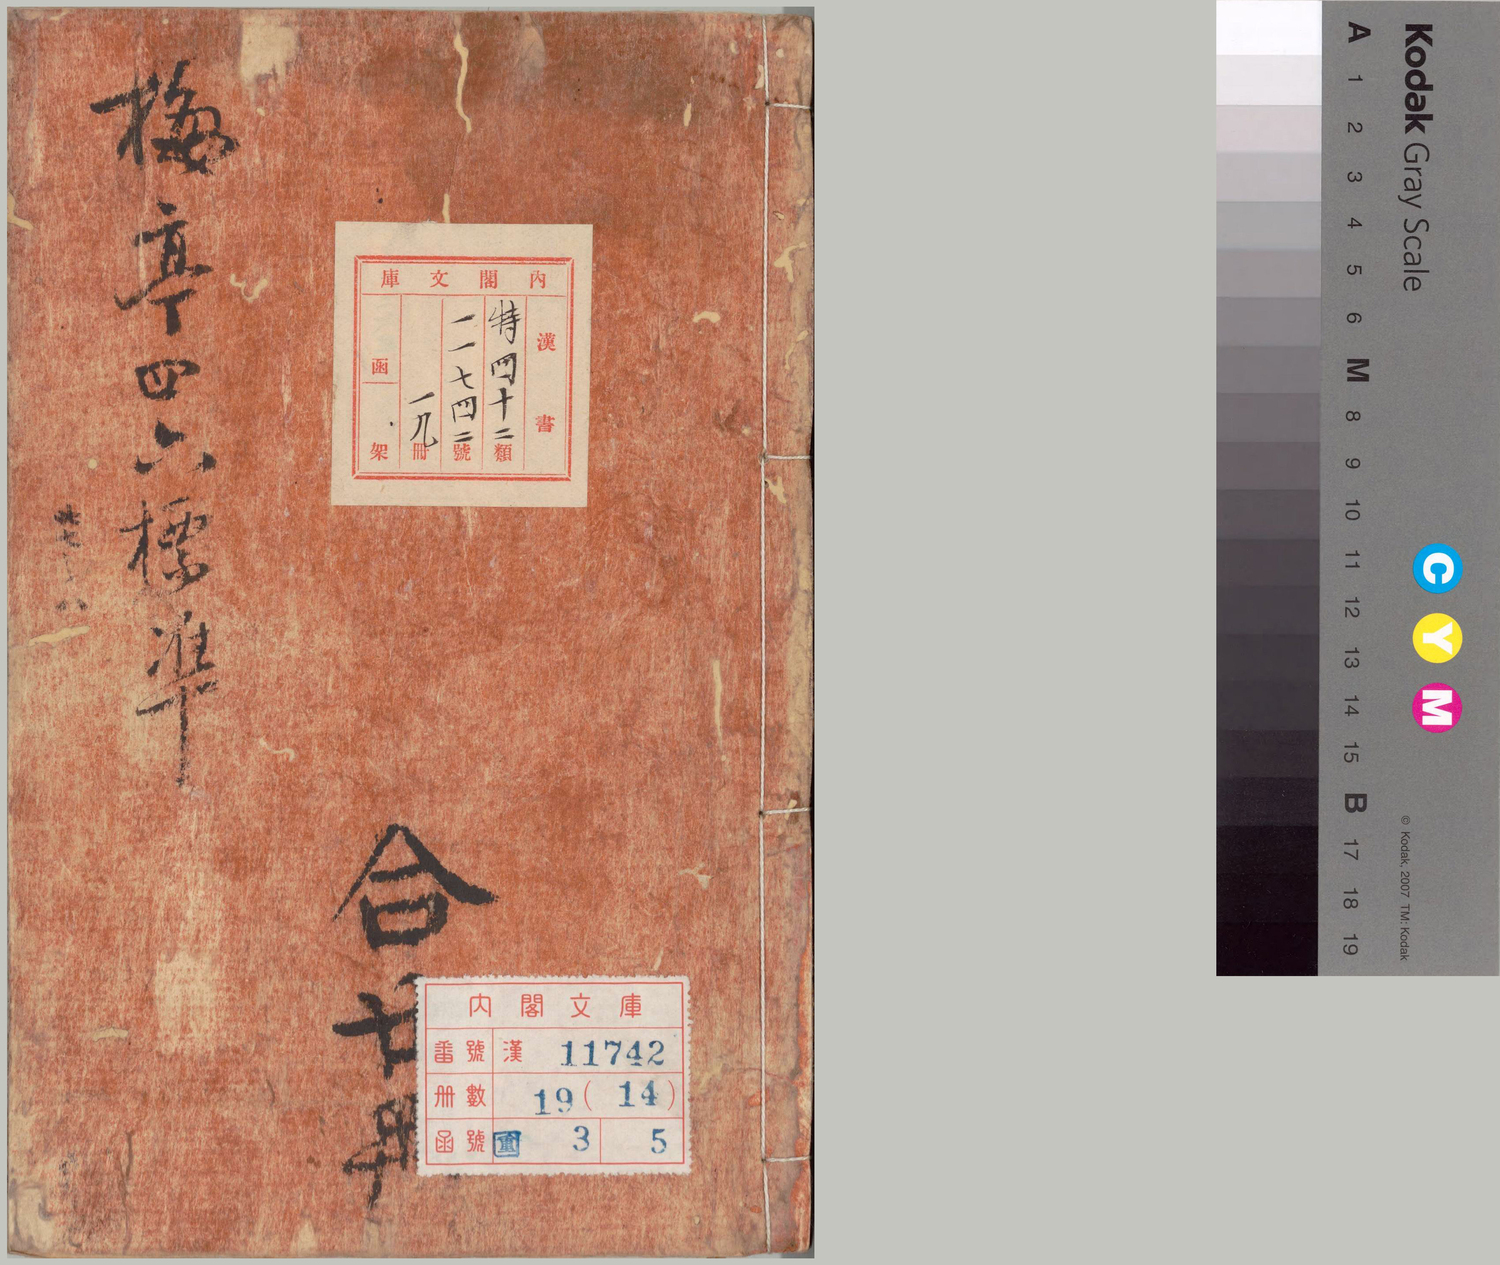 梅亭四六標準
合廿冊
內閣文庫
漢書
特四十二類
一一七四二號
一九冊
函
架
内閣文庫
番號 漢 11742
冊數 19(14)
函號 重 3 5
Kodak Gray Scale
C Y M
© Kodak, 2007 TM: Kodak
A 1 2 3 4 5 6 M 8 9 10 11 12 13 14 15 B 17 18 19